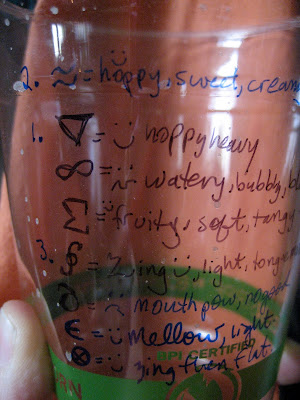 2. ~ = hoppy, sweet, creamy
1. = hoppy heavy
8 = watery, bubbly,
= fruity, soft, tangy
3. = Zing, light,
= mouthpow, no good
€ = mellow, light.
BPI CERTIFIED
⊗ = zing then flat.